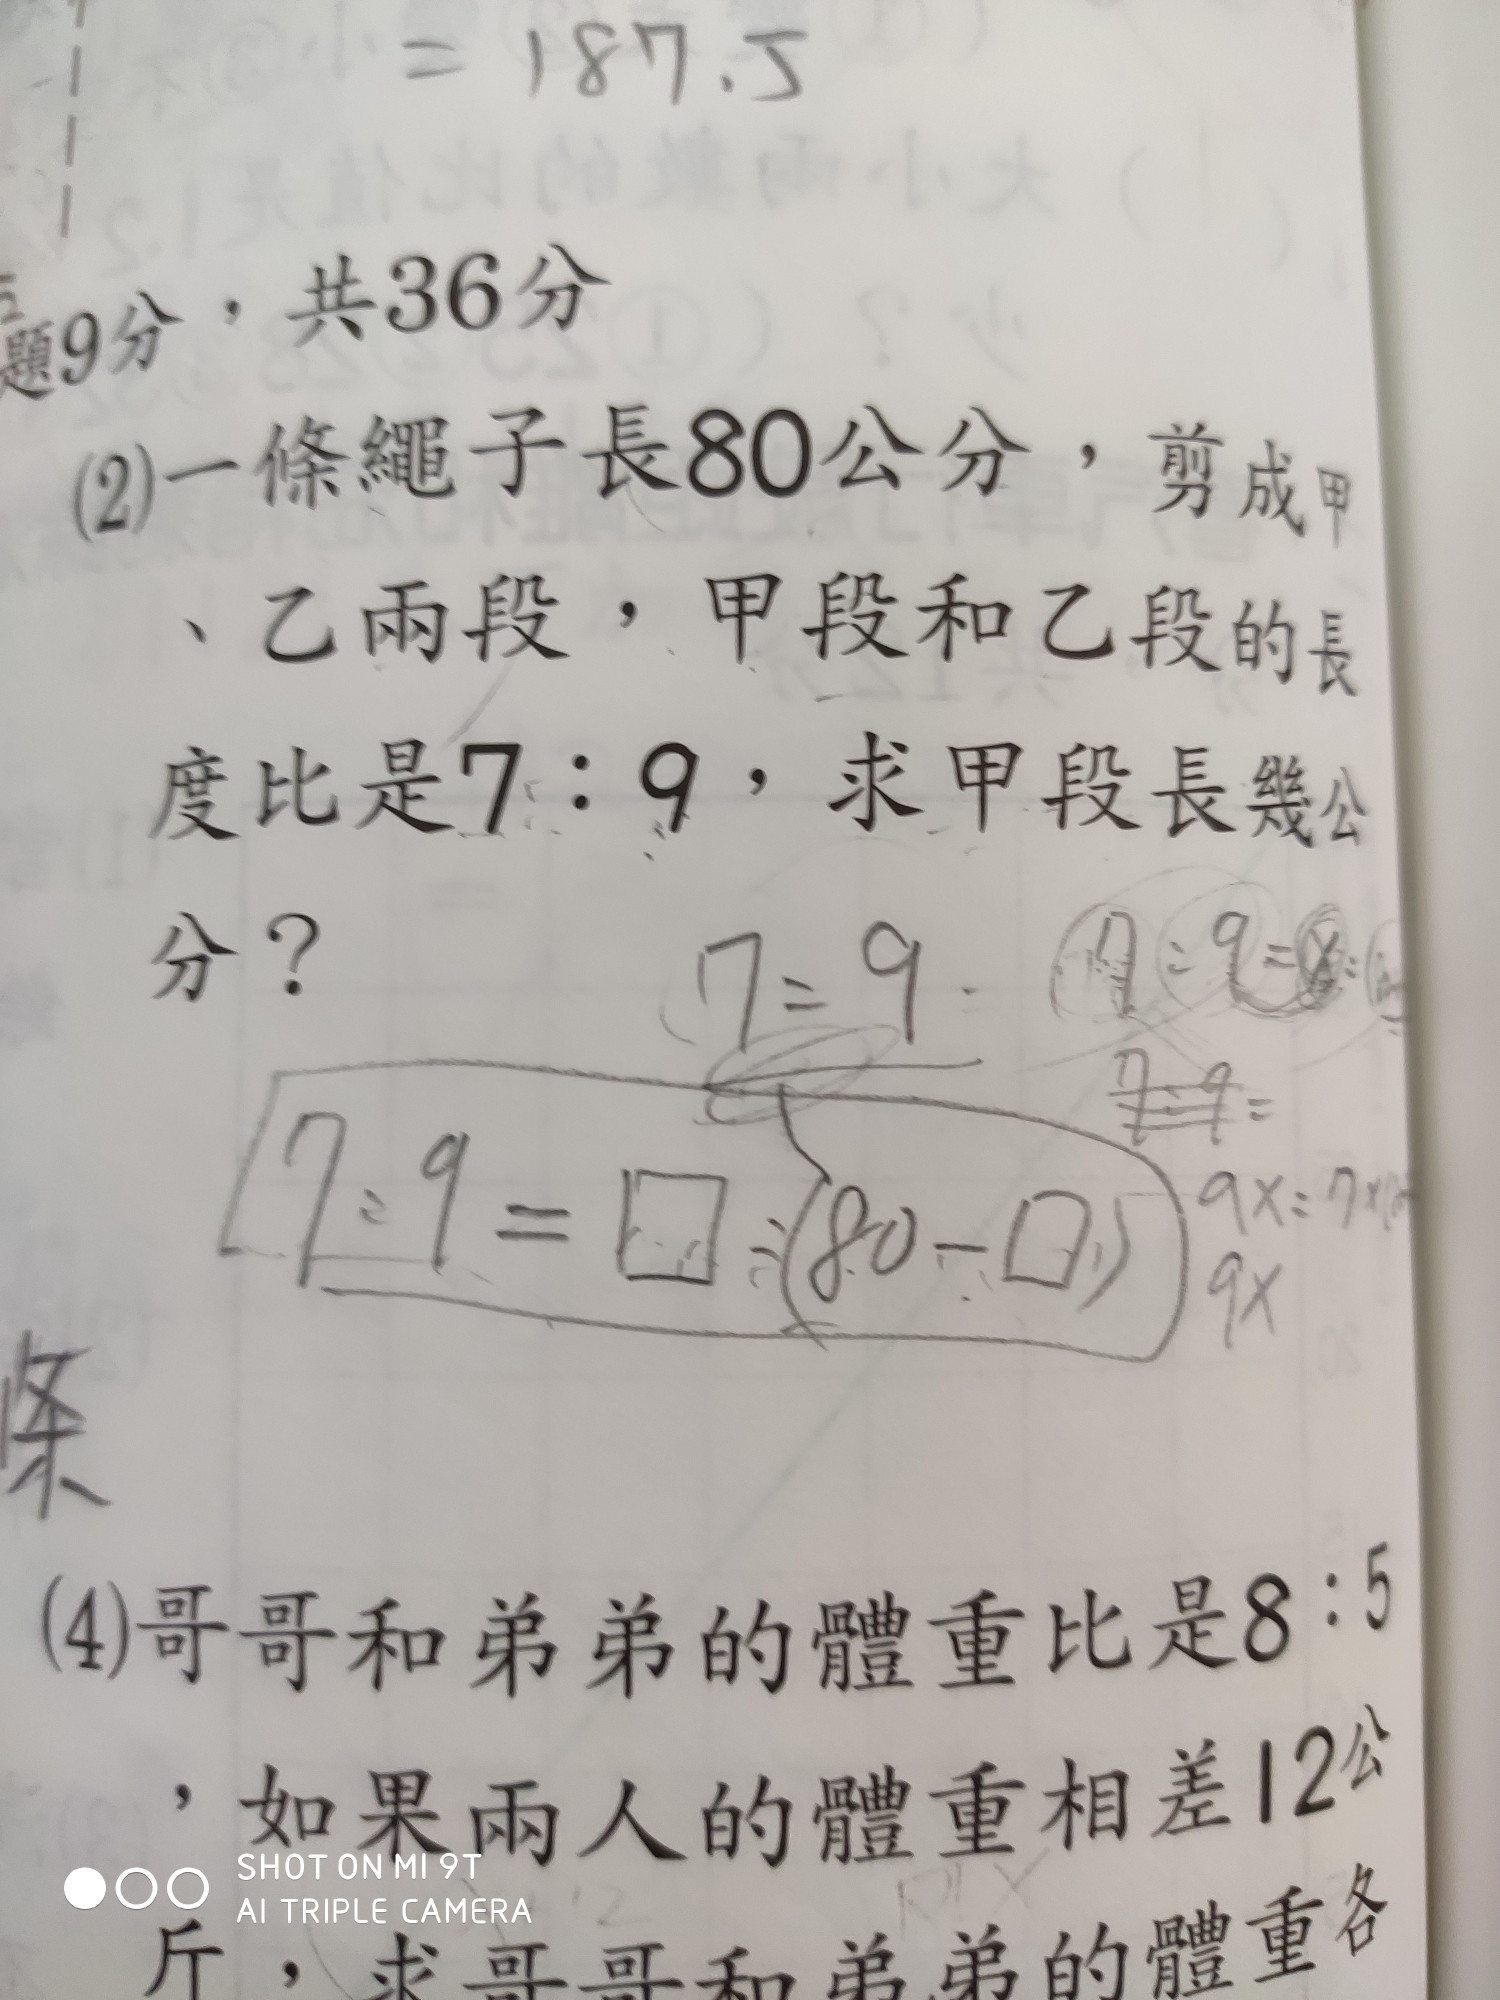 = 187.5
題9分，共36分
(2)一條繩子長80公分，剪成甲
、乙兩段，甲段和乙段的長
度比是7：9，求甲段長幾公
分？
7:9
7:9=
7:9=
7:9=□:(80-□)
9x=7x
9x
條
(4)哥哥和弟弟的體重比是8：5
，如果兩人的體重相差12公
斤，求哥哥和弟弟的體重各
SHOT ON MI 9T
AI TRIPLE CAMERA